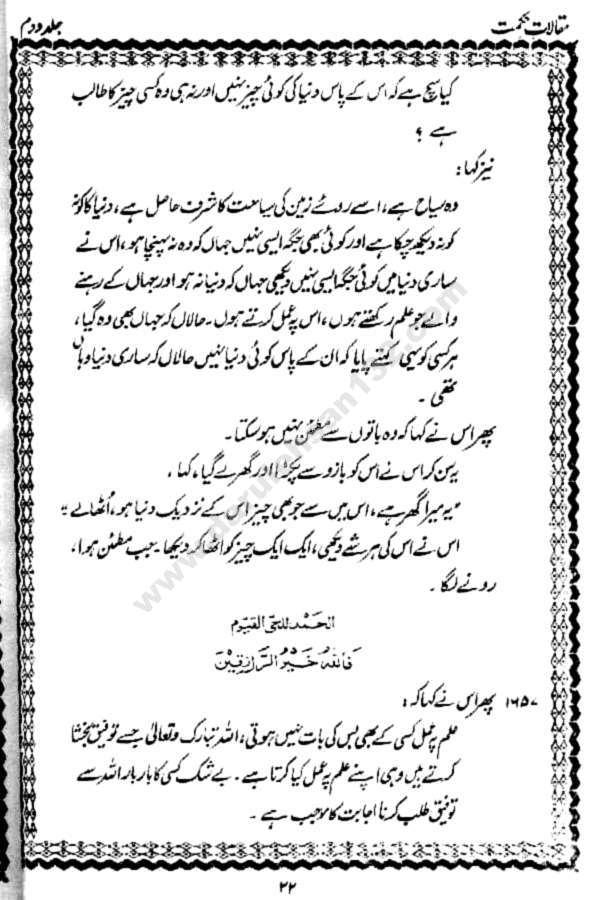 مقالاتِ حکمت
جلد دوم
کیا سچ ہے کہ اس کے پاس دنیا کی کوئی چیز نہیں اور نہ ہی وہ کسی چیز کا طالب
ہے ؟
نیز کہا :
وہ سیاح ہے، اسے روئے زمین کی سیاحت کا شرف حاصل ہے، دنیا کا کونہ
کونہ دیکھ چکا ہے اور کوئی بھی جگہ ایسی نہیں جہاں کہ وہ نہ پہنچا ہو، اس نے
ساری دنیا میں کوئی جگہ ایسی نہیں دیکھی جہاں کہ دنیا نہ ہو اور جہاں کے رہنے
والے جو علم رکھتے ہوں، اس پہ عمل کرتے ہوں۔ حالاں کہ جہاں بھی وہ گیا،
ہر کسی کو یہی کہتے پایا کہ ان کے پاس کوئی دنیا نہیں حالاں کہ ساری دنیا وہاں
تھی ۔
پھر اس نے کہا کہ وہ باتوں سے مطمئن نہیں ہو سکتا۔
یہ سن کر اس نے اس کو بازو سے پکڑا اور گھر لے گیا، کہا ،
"یہ میرا گھر ہے، اس میں سے جو بھی چیز اس کے نزدیک دنیا ہو، اُٹھالے"
اس نے اس کی ہر شے دیکھی، ایک ایک چیز کو اٹھا کر دیکھا۔ جب مطمئن ہوا،
رونے لگا ۔
الحمد للحی القیوم
فَاللهُ خَيْرُ الرَّازِقِيْنَ
۱۶۵۷ پھر اس نے کہا کہ :
علم پہ عمل کسی کے بھی بس کی بات نہیں ہوتی، اللہ تبارک وتعالیٰ جسے توفیق بخشا
کرتے ہیں وہی اپنے علم پہ عمل کیا کرتا ہے۔ بے شک کسی کا بار بار اللہ سے
توفیق طلب کرنا اجابت کا موجب ہے ۔
۲۲